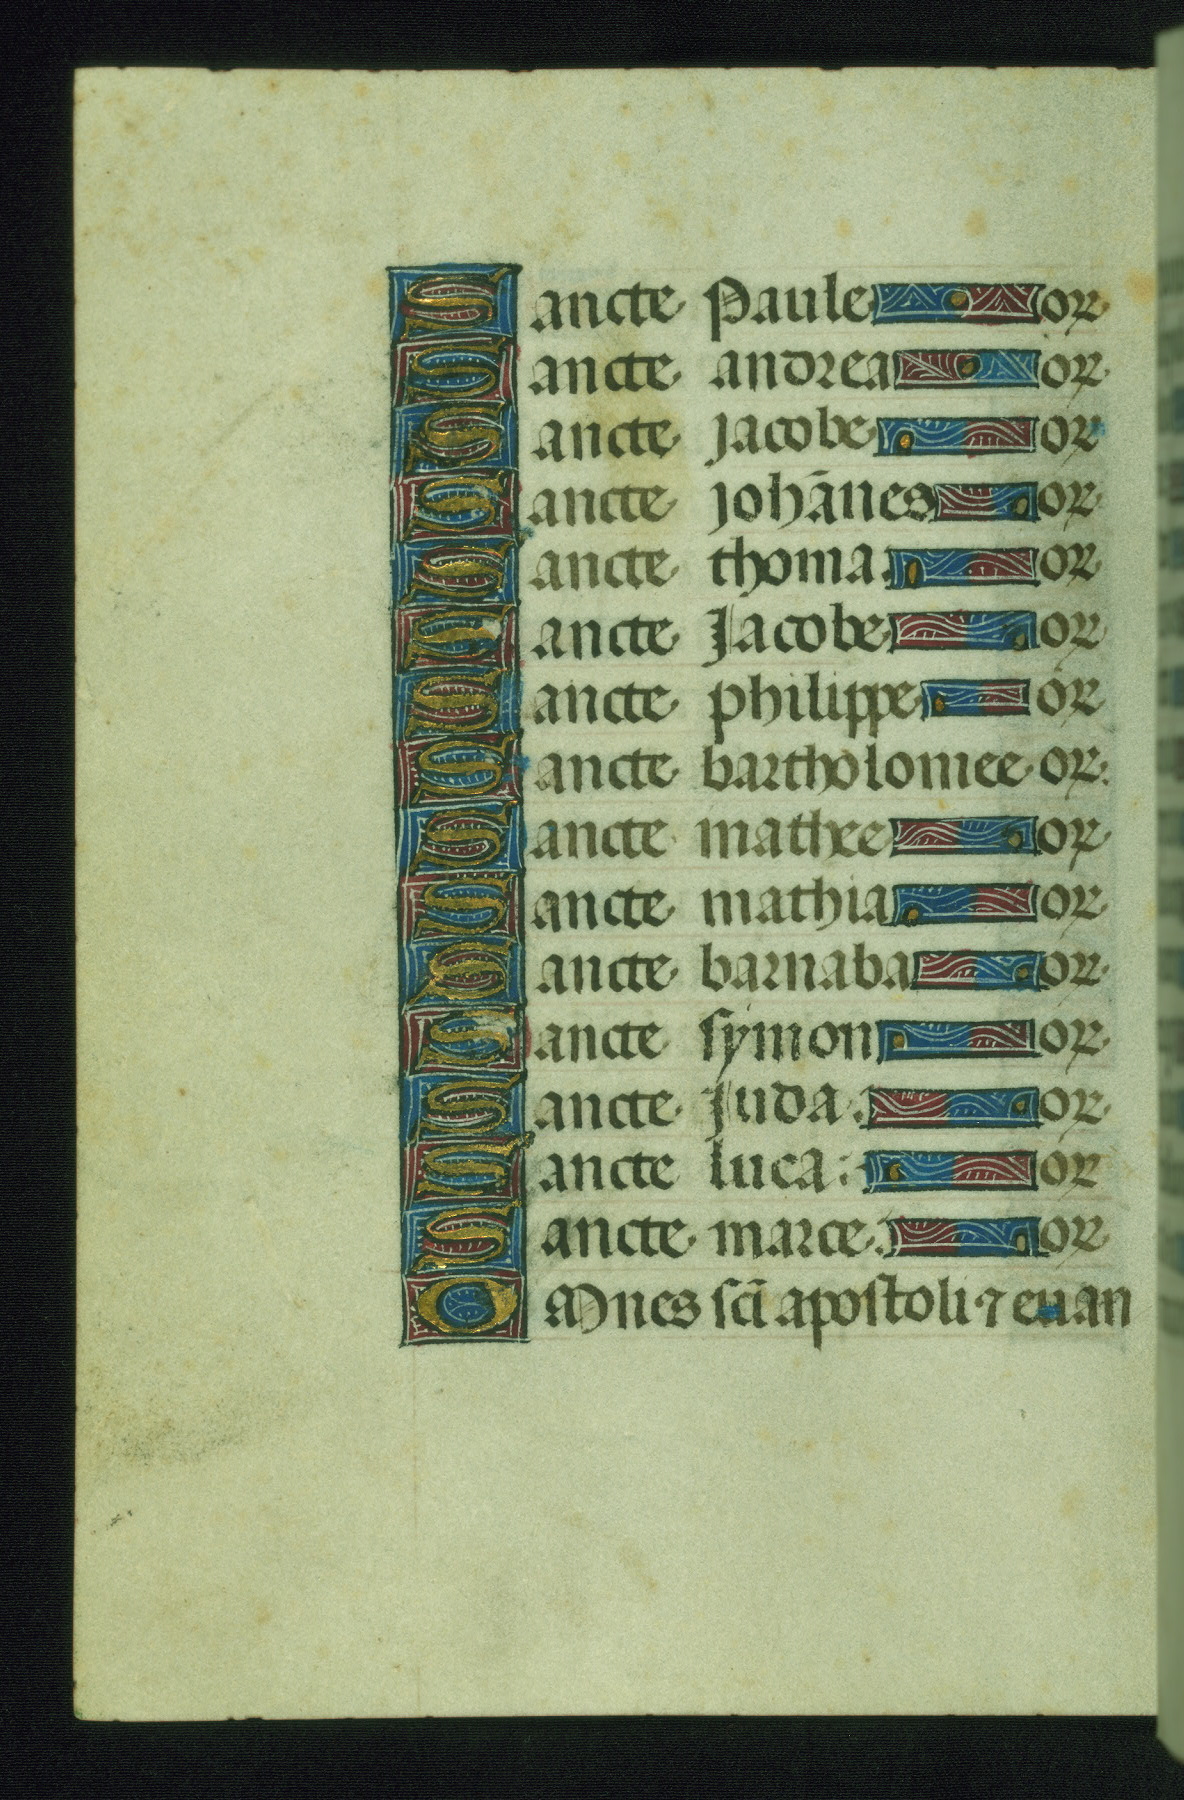 Sancte Paule or
Sancte andrea or
Sancte jacobe or
Sancte johānes or
Sancte thoma. or
Sancte Jacobe or
Sancte philippe or
Sancte bartholomee or.
Sancte mathee or
Sancte mathia or
Sancte barnaba or
Sancte ſymon or
Sancte Juda. or
Sancte luca: or
Sancte marce. or
Omnes ſcī apoſtoli ⁊ euan